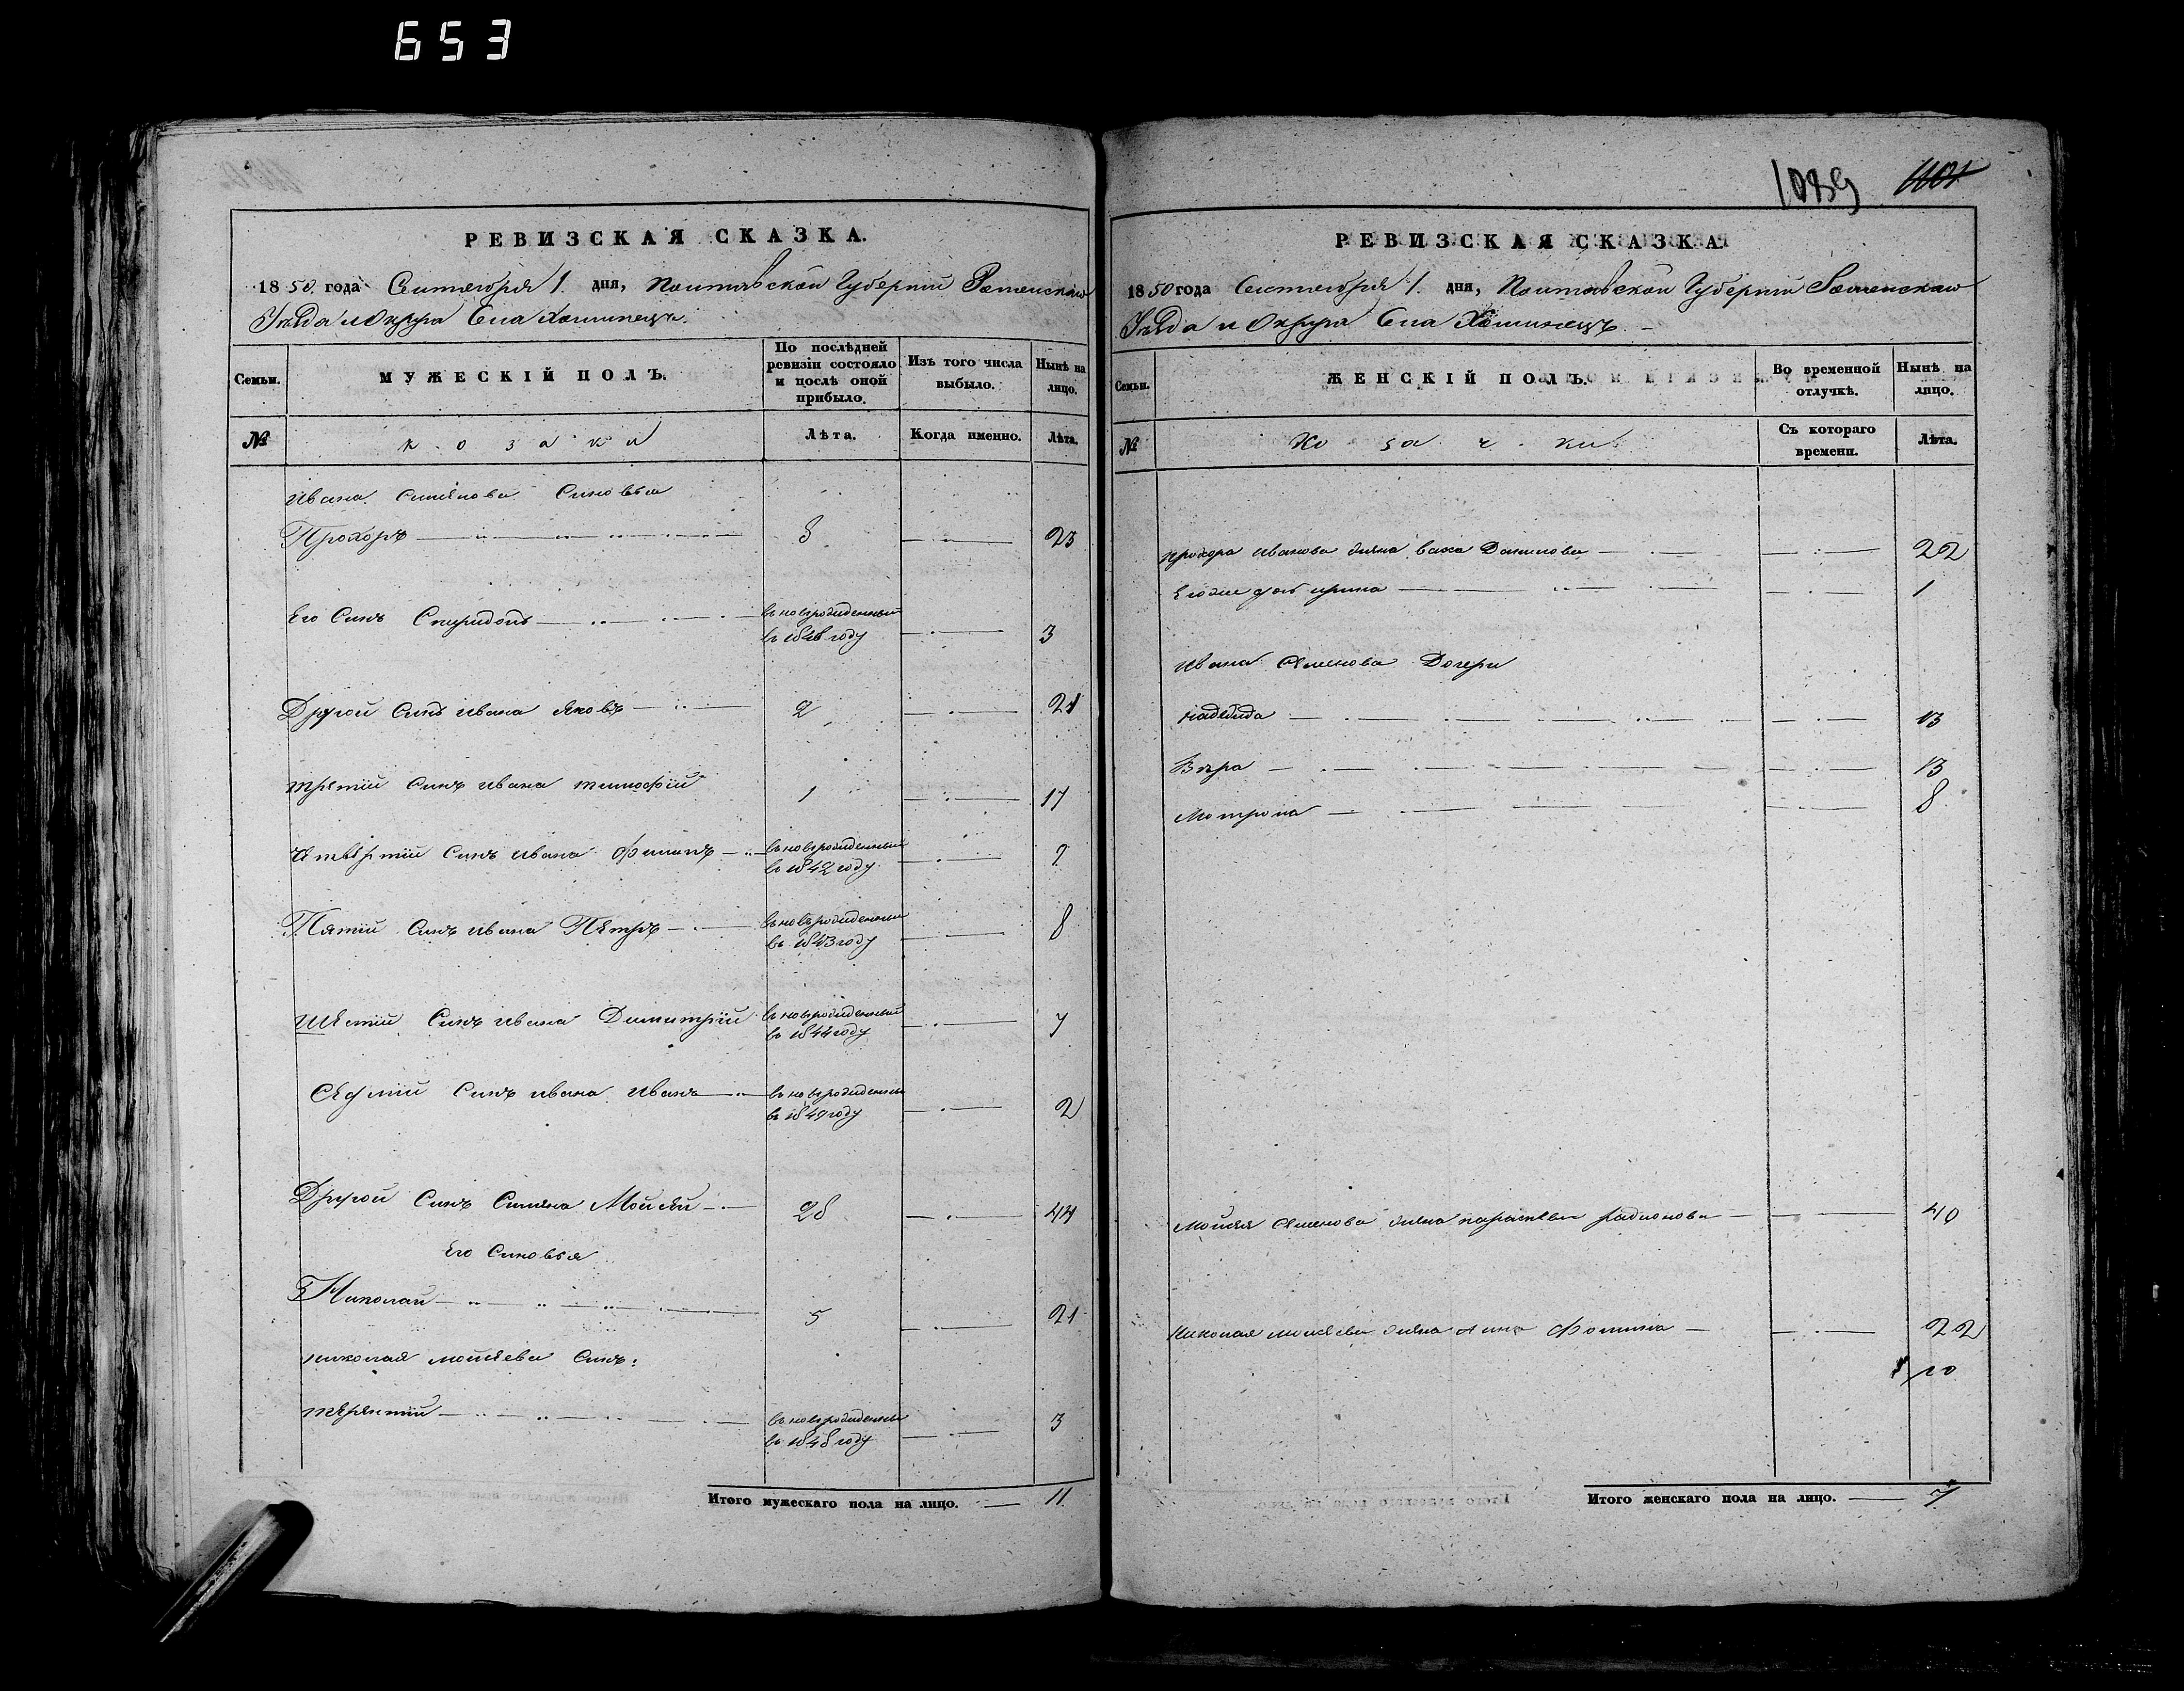 653
РЕВИЗСКАЯ СКАЗКА.
1850. года Сентября 1. дня, Полтавской Губерніи Роменскаго
Уѣзда и Округа Села Хоминецъ.
Семьи.
МУЖЕСКІЙ ПОЛЪ.
По послѣдней ревизіи состояло и послѣ оной прибыло.
Изъ того числа выбыло.
Нынѣ на лицо.
№
козаки
Лѣта.
Когда именно.
Лѣта.
Ивана Симіонова Синовья
Прохоръ 8 23
Его Синъ Спиридонъ въновърожденный
въ 1848 году 3
Другой Синъ Ивана Яковъ 2 21
Третій Синъ Ивана Тимофій 1 17
Четвѣртій Синъ Ивана Филипъ въновърожденный
въ 1842 году 9
Пятій Синъ Ивана Пѣтръ въновърожденный
въ 1843 году 8
Шѣстій Синъ Ивана Димитрій въновърожденный
въ 1844 году 7
Сѣдмій Синъ Ивана Иванъ въновърожденный
въ 1849 году 2
Другой Синъ Симіона Мойсѣй 28 44
Его Синовья
Николай 5 21
Николая Мойсѣева Синъ:
Терентій въновърожденный
въ 1848 году 3
Итого мужескаго пола на лицо. 11
1089 1101
РЕВИЗСКАЯ СКАЗКА.
1850 года Сентября 1. дня, Полтавской Губерніи Роменскаго
Уѣзда и Округа Села Хоминецъ.
Семьи.
ЖЕНСКІЙ ПОЛЪ.
Во временной отлучкѣ.
Нынѣ на лицо.
№
Козачки
Съ котораго времени.
Лѣта.
Прохора Иванова жена Васа Данилова 22
Егоже доч Ирина 1
Ивана Семенова Дочери
Надежда 13
Вѣра 13
Мотрона 8
Мойсея Семенова жена Параскева Радионова 40
Николая Мойсѣева жена Анна Фомина 22
10
Итого женскаго пола на лицо. 7